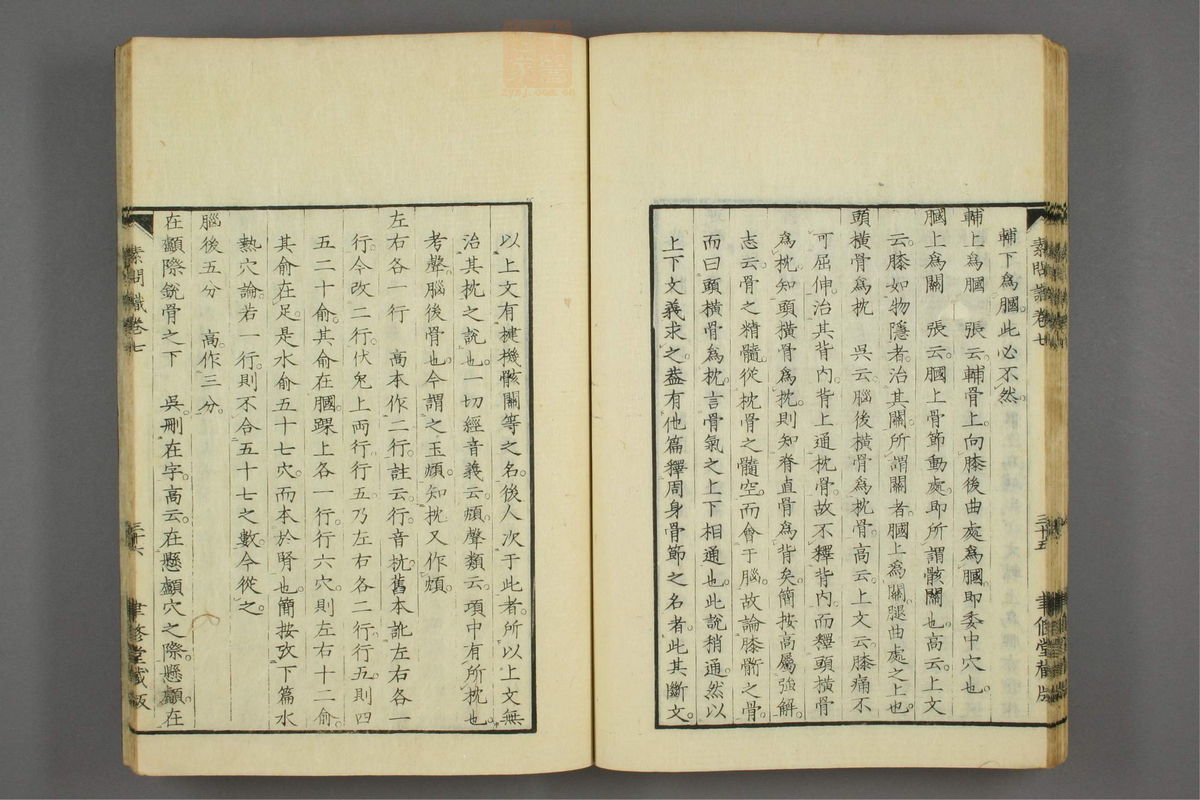 輔下爲膕此必不然
輔上爲膕　張云輔骨上向膝後曲處爲膕即委中穴也
膕上爲關　張云膕上骨節動處即所謂骸關也高云上文
云膝如物隱者治其關所謂關者膕上爲關腿曲處之上也
頭橫骨爲枕　吳云腦後橫骨爲枕骨高云上文云膝痛不
可屈伸治其背內背上通枕骨故不釋背內而釋頭橫骨
爲枕知頭橫骨爲枕則知脊直骨爲背矣簡按高屬強解
志云骨之精髓從枕骨之髓空而會于腦故論膝骭之骨
而曰頭橫骨爲枕言骨氣之上下相通也此說稍通然以
上下文義求之葢有他篇釋周身骨節之名者此其斷文
素問識卷七
三十五
聿修堂藏版
以上文有揵機骸關等之名後人次于此者所以上文無
治其枕之說也一切經音義云頄聲類云項中有所枕也
考聲腦後骨也今謂之玉頄知枕又作頄
左右各一行　高本作二行註云行音杭舊本訛左右各一
行今改二行伏兔上兩行行五乃左右各二行行五則四
五二十俞其俞在膕踝上各一行行六穴則左右十二俞
其俞在足是水俞五十七穴而本於腎也簡按攷下篇水
熱穴論若一行則不合五十七之數今從之
腦後五分　高作三分
在顱際銳骨之下　吳刪在字高云在懸顱穴之際懸顱在
素問識卷七
三十六
聿修堂藏版